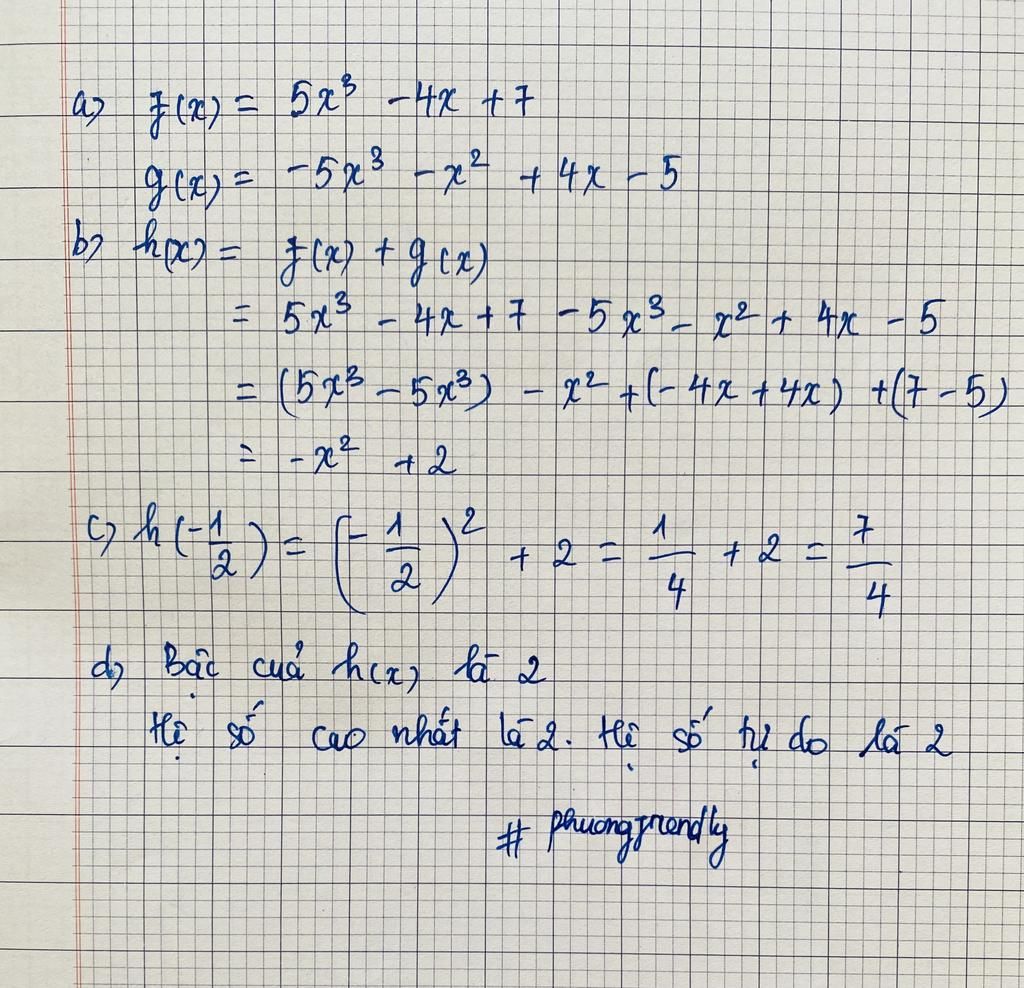 a) f(x) = 5x³ - 4x + 7
g(x) = -5x³ - x² + 4x - 5
b) h(x) = f(x) + g(x)
= 5x³ - 4x + 7 - 5x³ - x² + 4x - 5
= (5x³ - 5x³) - x² + (-4x + 4x) + (7 - 5)
= -x² + 2
c) h(-1/2) = (-1/2)² + 2 = 1/4 + 2 = 7/4
d) Bậc cuả h(x) là 2
Hệ số cao nhất là 2. Hệ số tự do là 2
# phuongfriendly